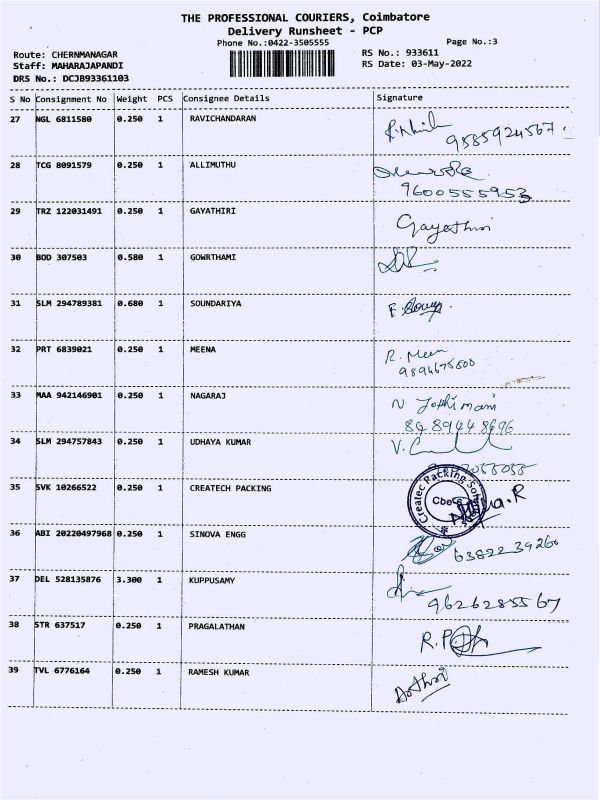 THE PROFESSIONAL COURIERS, Coimbatore
Delivery Runsheet - PCP
Phone No.:0422-3505555 Page No.:3
Route: CHERNMANAGAR RS No.: 933611
Staff: MAHARAJAPANDI RS Date: 03-May-2022
DRS No.: DCJB93361103
S No Consignment No Weight PCS Consignee Details Signature
27 NGL 6811580 0.250 1 RAVICHANDARAN
9585924567
28 TCG 8091579 0.250 1 ALLIMUTHU
9600555953
29 TRZ 122031491 0.250 1 GAYATHIRI Gayathiri
30 BOD 307503 0.580 1 GOWRTHAMI
31 SLM 294789381 0.680 1 SOUNDARIYA
32 PRT 6839021 0.250 1 MEENA R. Meen
9894675500
33 MAA 942146901 0.250 1 NAGARAJ N Jothimani
8489448696
34 SLM 294757843 0.250 1 UDHAYA KUMAR
35 SVK 10266522 0.250 1 CREATECH PACKING Createc Packing
36 ABI 20220497968 0.250 1 SINOVA ENGG 6382239260
37 DEL 528135876 3.300 1 KUPPUSAMY
9626285567
38 STR 637517 0.250 1 PRAGALATHAN
39 TVL 6776164 0.250 1 RAMESH KUMAR